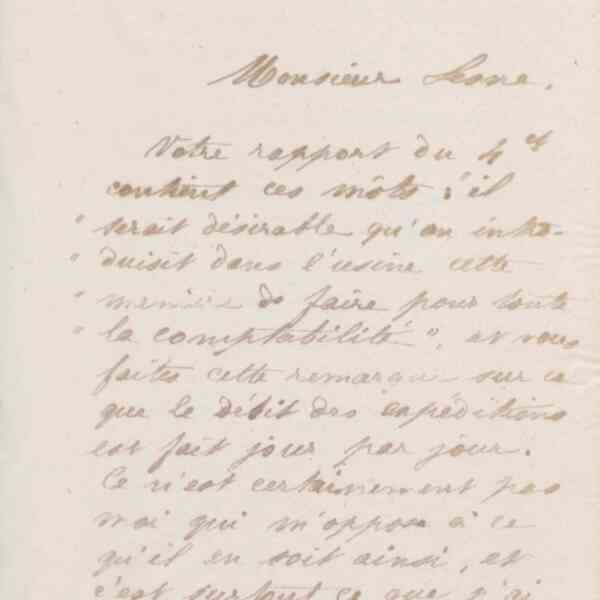 Monsieur Sesne.
Votre rapport du 4 ct
contient ces mots : "il
" serait désirable qu'on intro-
" duisit dans l'usine cette
" manière de faire pour toute
" la comptabilité", et vous
faites cette remarque sur ce
que le débit des expéditions
est fait jour par jour.
Ce n'est certainement pas
moi qui m'oppose à ce
qu'il en soit ainsi, et
c'est surtout ce que j'ai